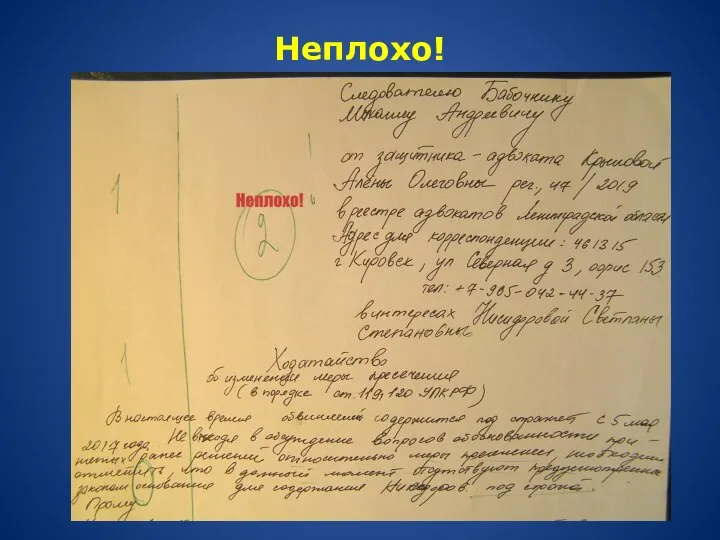 Неплохо!
Следователю Бабочнику
Михаилу Андреевичу
от защитника - адвоката Крыловой
Алёны Олеговны рег, 47/2019
в реестре адвокатов Ленинградской области
Адрес для корреспонденции: 461315
г Кировск, ул Северная д 3, офис 153
тел: +7-905-042-44-37
1
Неплохо!
2
в интересах Никифоровой Светланы
Степановны
1
Ходатайство
об изменении меры пресечения
(в порядке ст. 119, 120 УПК РФ)
В настоящее время обвиняемая содержится под стражей с 5 мая
2017 года. Не входя в обсуждение вопросов обоснованности при-
нятых ранее решений относительно меры пресечения, необходимо
отметить, что в данный момент отсутствуют предусмотренные
законом основания для содержания под стражей.
Прошу